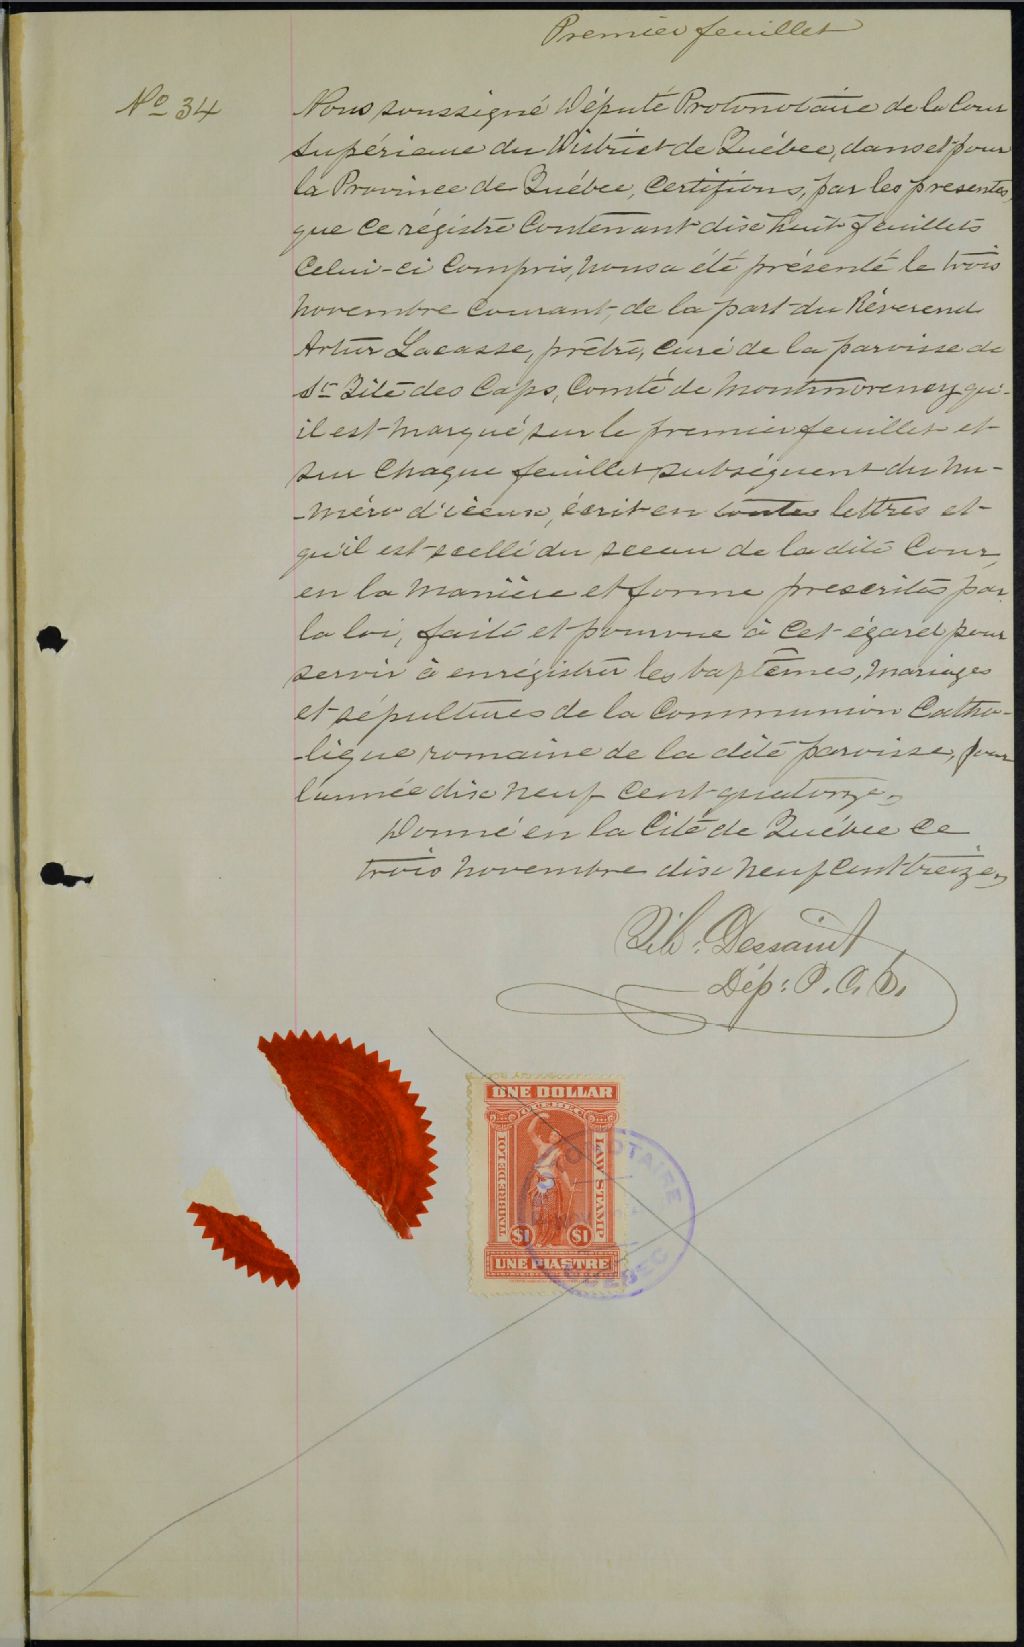 Premier feuillet
No 34
Nous soussigné Député Protonotaire de la Cour
Supérieure du District de Québec, dans et pour
la Province de Québec, Certifions, par les presentes,
que ce régistre Contenant dix huit feuillets
Celui-ci Compris, nous a été présenté le trois
novembre courant, de la part du Réverend
Artur Lacasse, prêtre, curé de la paroisse de
St Tite des Caps, Comté de Montmorency qu'
il est marqué sur le premier feuillet et
sur Chaque feuillet subséquent du nu-
-méro d'iceux, écrit en toutes lettres et
qu'il est scellé du sceau de la dite Cour,
en la manière et forme prescrites par
la loi, faite et pourvue à cet égard pour
servir à enrégistrer les baptêmes, mariages
et sépultures de la Communion Catho-
-lique romaine de la dite paroisse, pour
l'année dix neuf cent quatorze,
Donné en la Cité de Québec ce
trois novembre dix neuf cent treize,
Dessaint
Dép: P. C. S.
ONE DOLLAR
QUEBEC
TIMBRE DE LOI
LAW STAMP
$1 $1
UNE PIASTRE
PROTONOTAIRE
QUEBEC